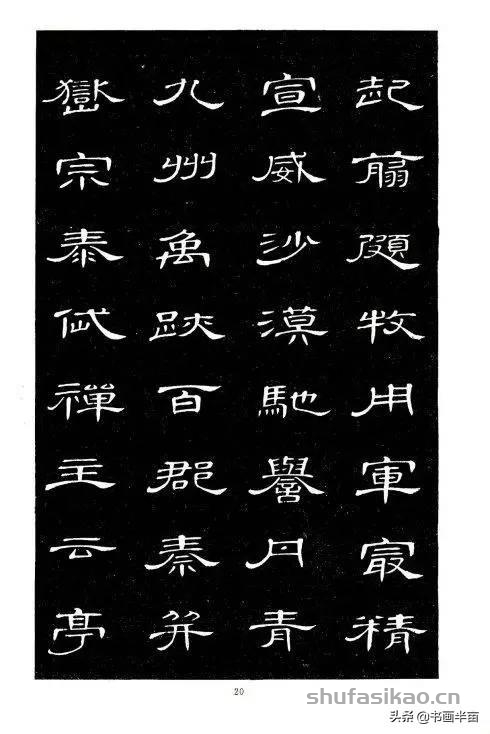 起翦頗牧用軍㝡精
宣威沙漠馳譽丹青
九州禹跡百郡秦并
嶽宗泰岱禪主云亭
20
shufasikao.cn
头条 @书画半亩